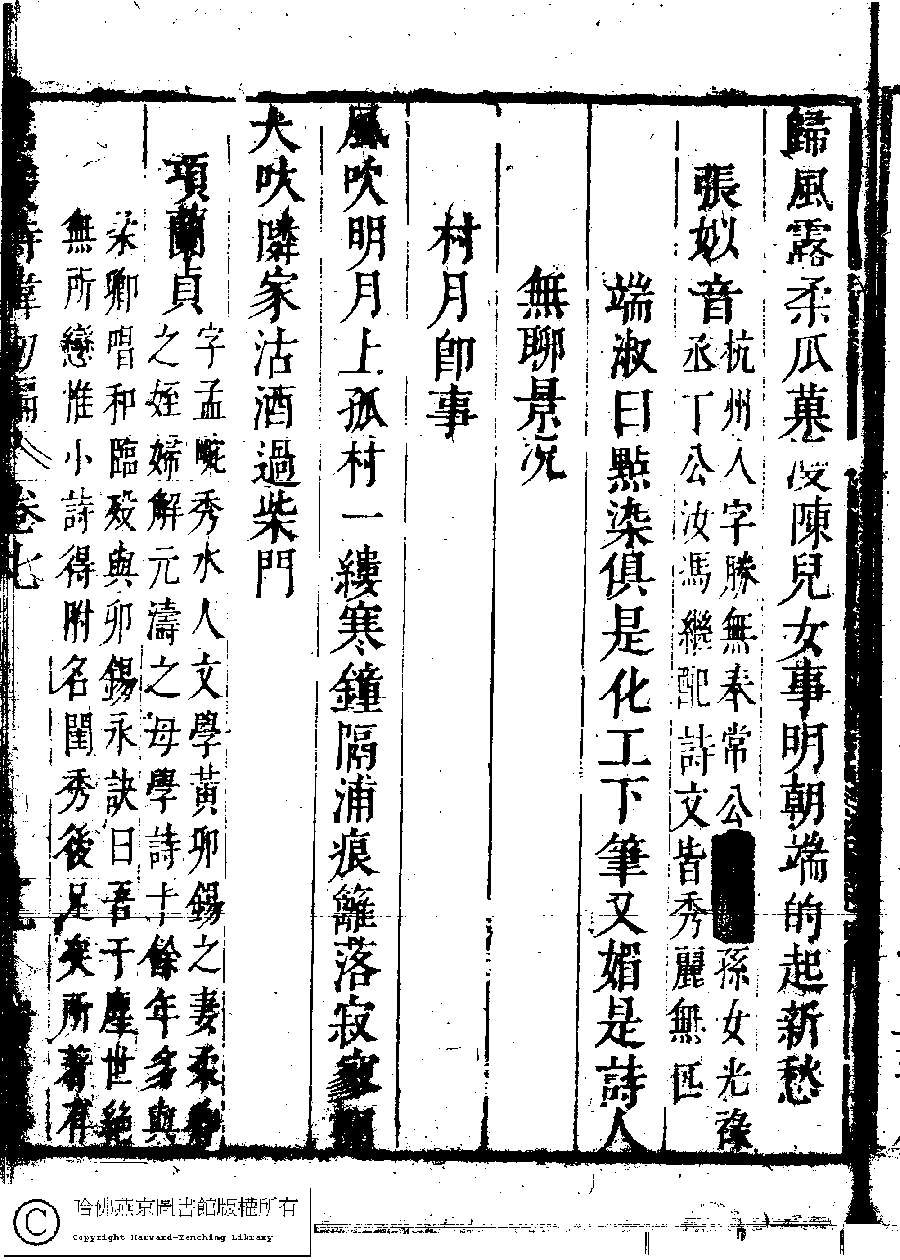 歸風露柔瓜菓漫陳兒女事明朝端的起新愁
張姒音
杭州人字勝無奉常公孫女光祿
丞丁公汝馮繼配詩文皆秀麗無匹
端淑曰點染俱是化工下筆又媚是詩人
無聊景況
村月卽事
風吹明月上孤村一縷寒鐘隔浦痕籬落寂寥
犬吠隣家沽酒過柴門
項蘭貞
字孟畹秀水人文學黃卯錫之妻柔卿
之姪婦解元濤之母學詩十餘年多與
柔卿唱和臨歿與卯錫永訣曰吾于塵世絶
無所戀惟小詩得附名閨秀後足矣所著有
名媛詩緯初編 卷七
哈佛燕京圖書館版權所有
Copyright Harvard-Yenching Library